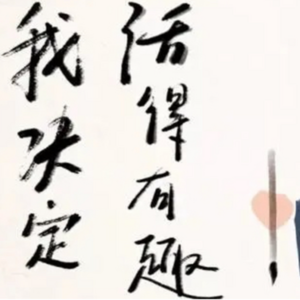 我决定
活得有趣